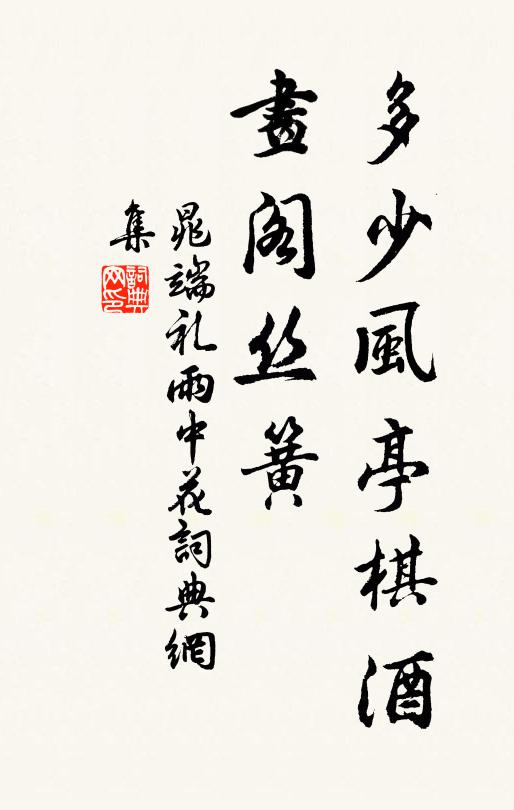 多少風亭棋酒
畫阁丝簧
晁端礼雨中花詞典網
集
詞典
网印